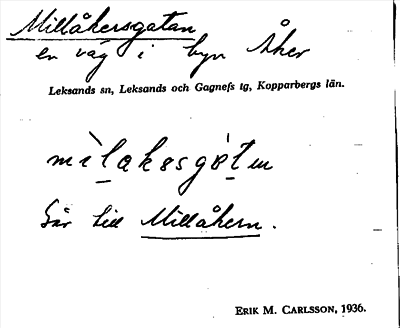 Millåkersgatan
en väg i byn Åker
Leksands sn, Leksands och Gagnefs tg, Kopparbergs län.
mìlakəsgátɯ
Går till Millåkern.
ERIK M. CARLSSON, 1936.